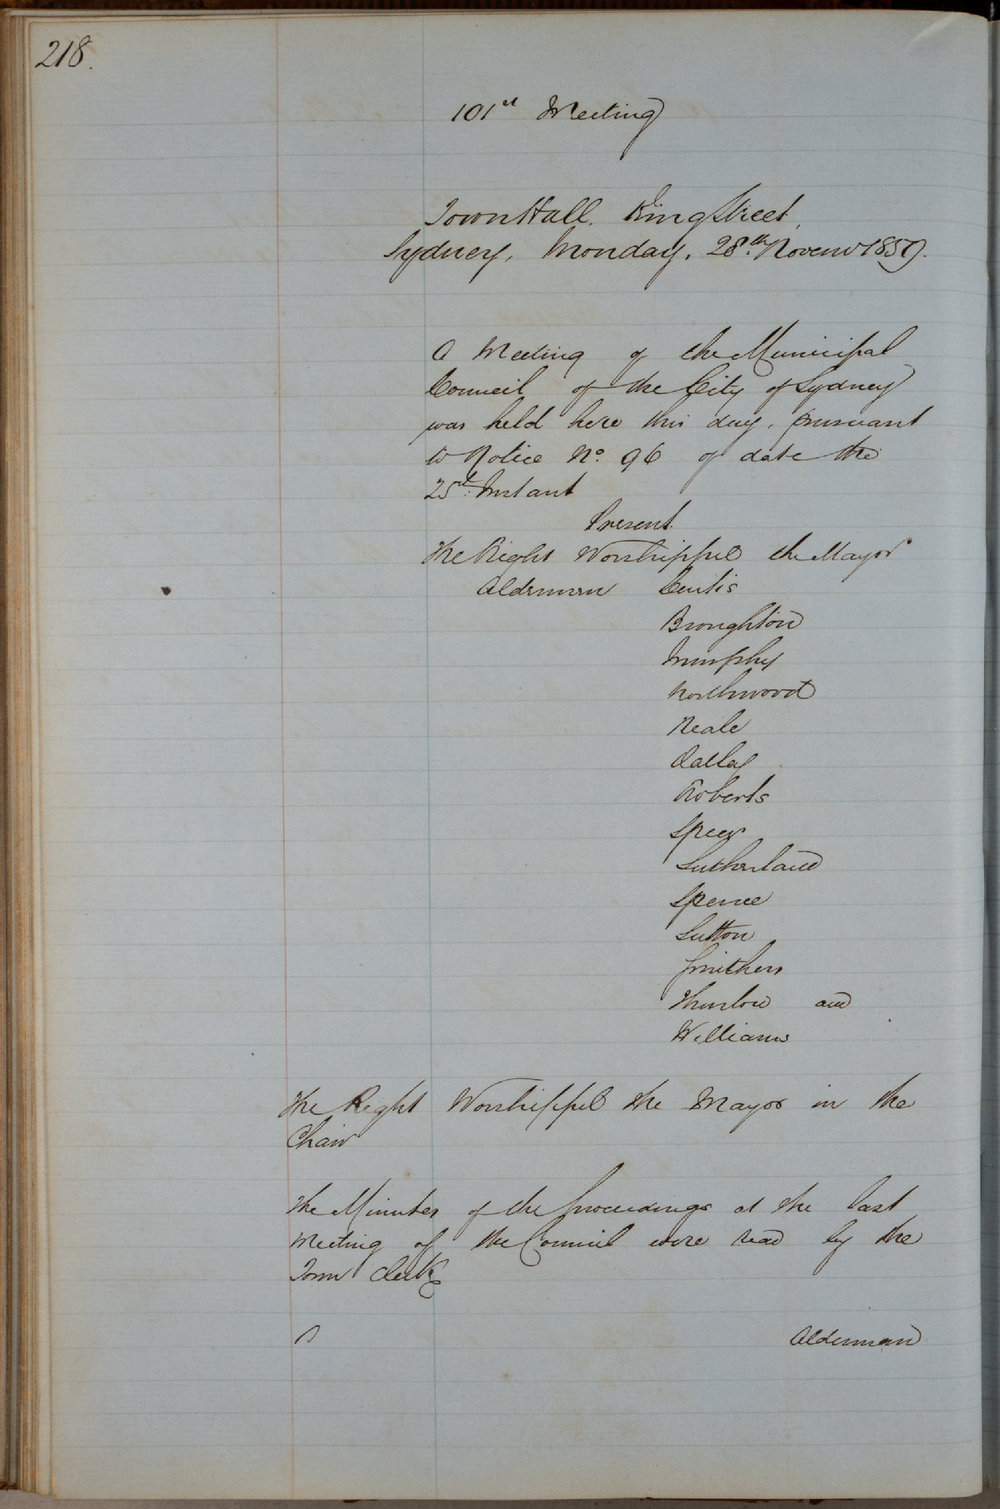 218.
101st Meeting
Town Hall. King Street,
Sydney, Monday, 28th Novemr 1859.
A Meeting of the Municipal
Council of the City of Sydney
was held here this day, pursuant
to Notice No. 96 of date the
25th Instant
Present.
The Right Worshipful the Mayor
Aldermen Curtis
Broughton
Murphy
Northwood
Neale
Oatley
Roberts
Speer
Sutherland
Spence
Sutton
Smithers
Thurlow and
Williams
The Right Worshipful the Mayor in the
Chair
The Minutes of the proceedings at the last
Meeting of the Council were read by the
Town Clerk
Alderman